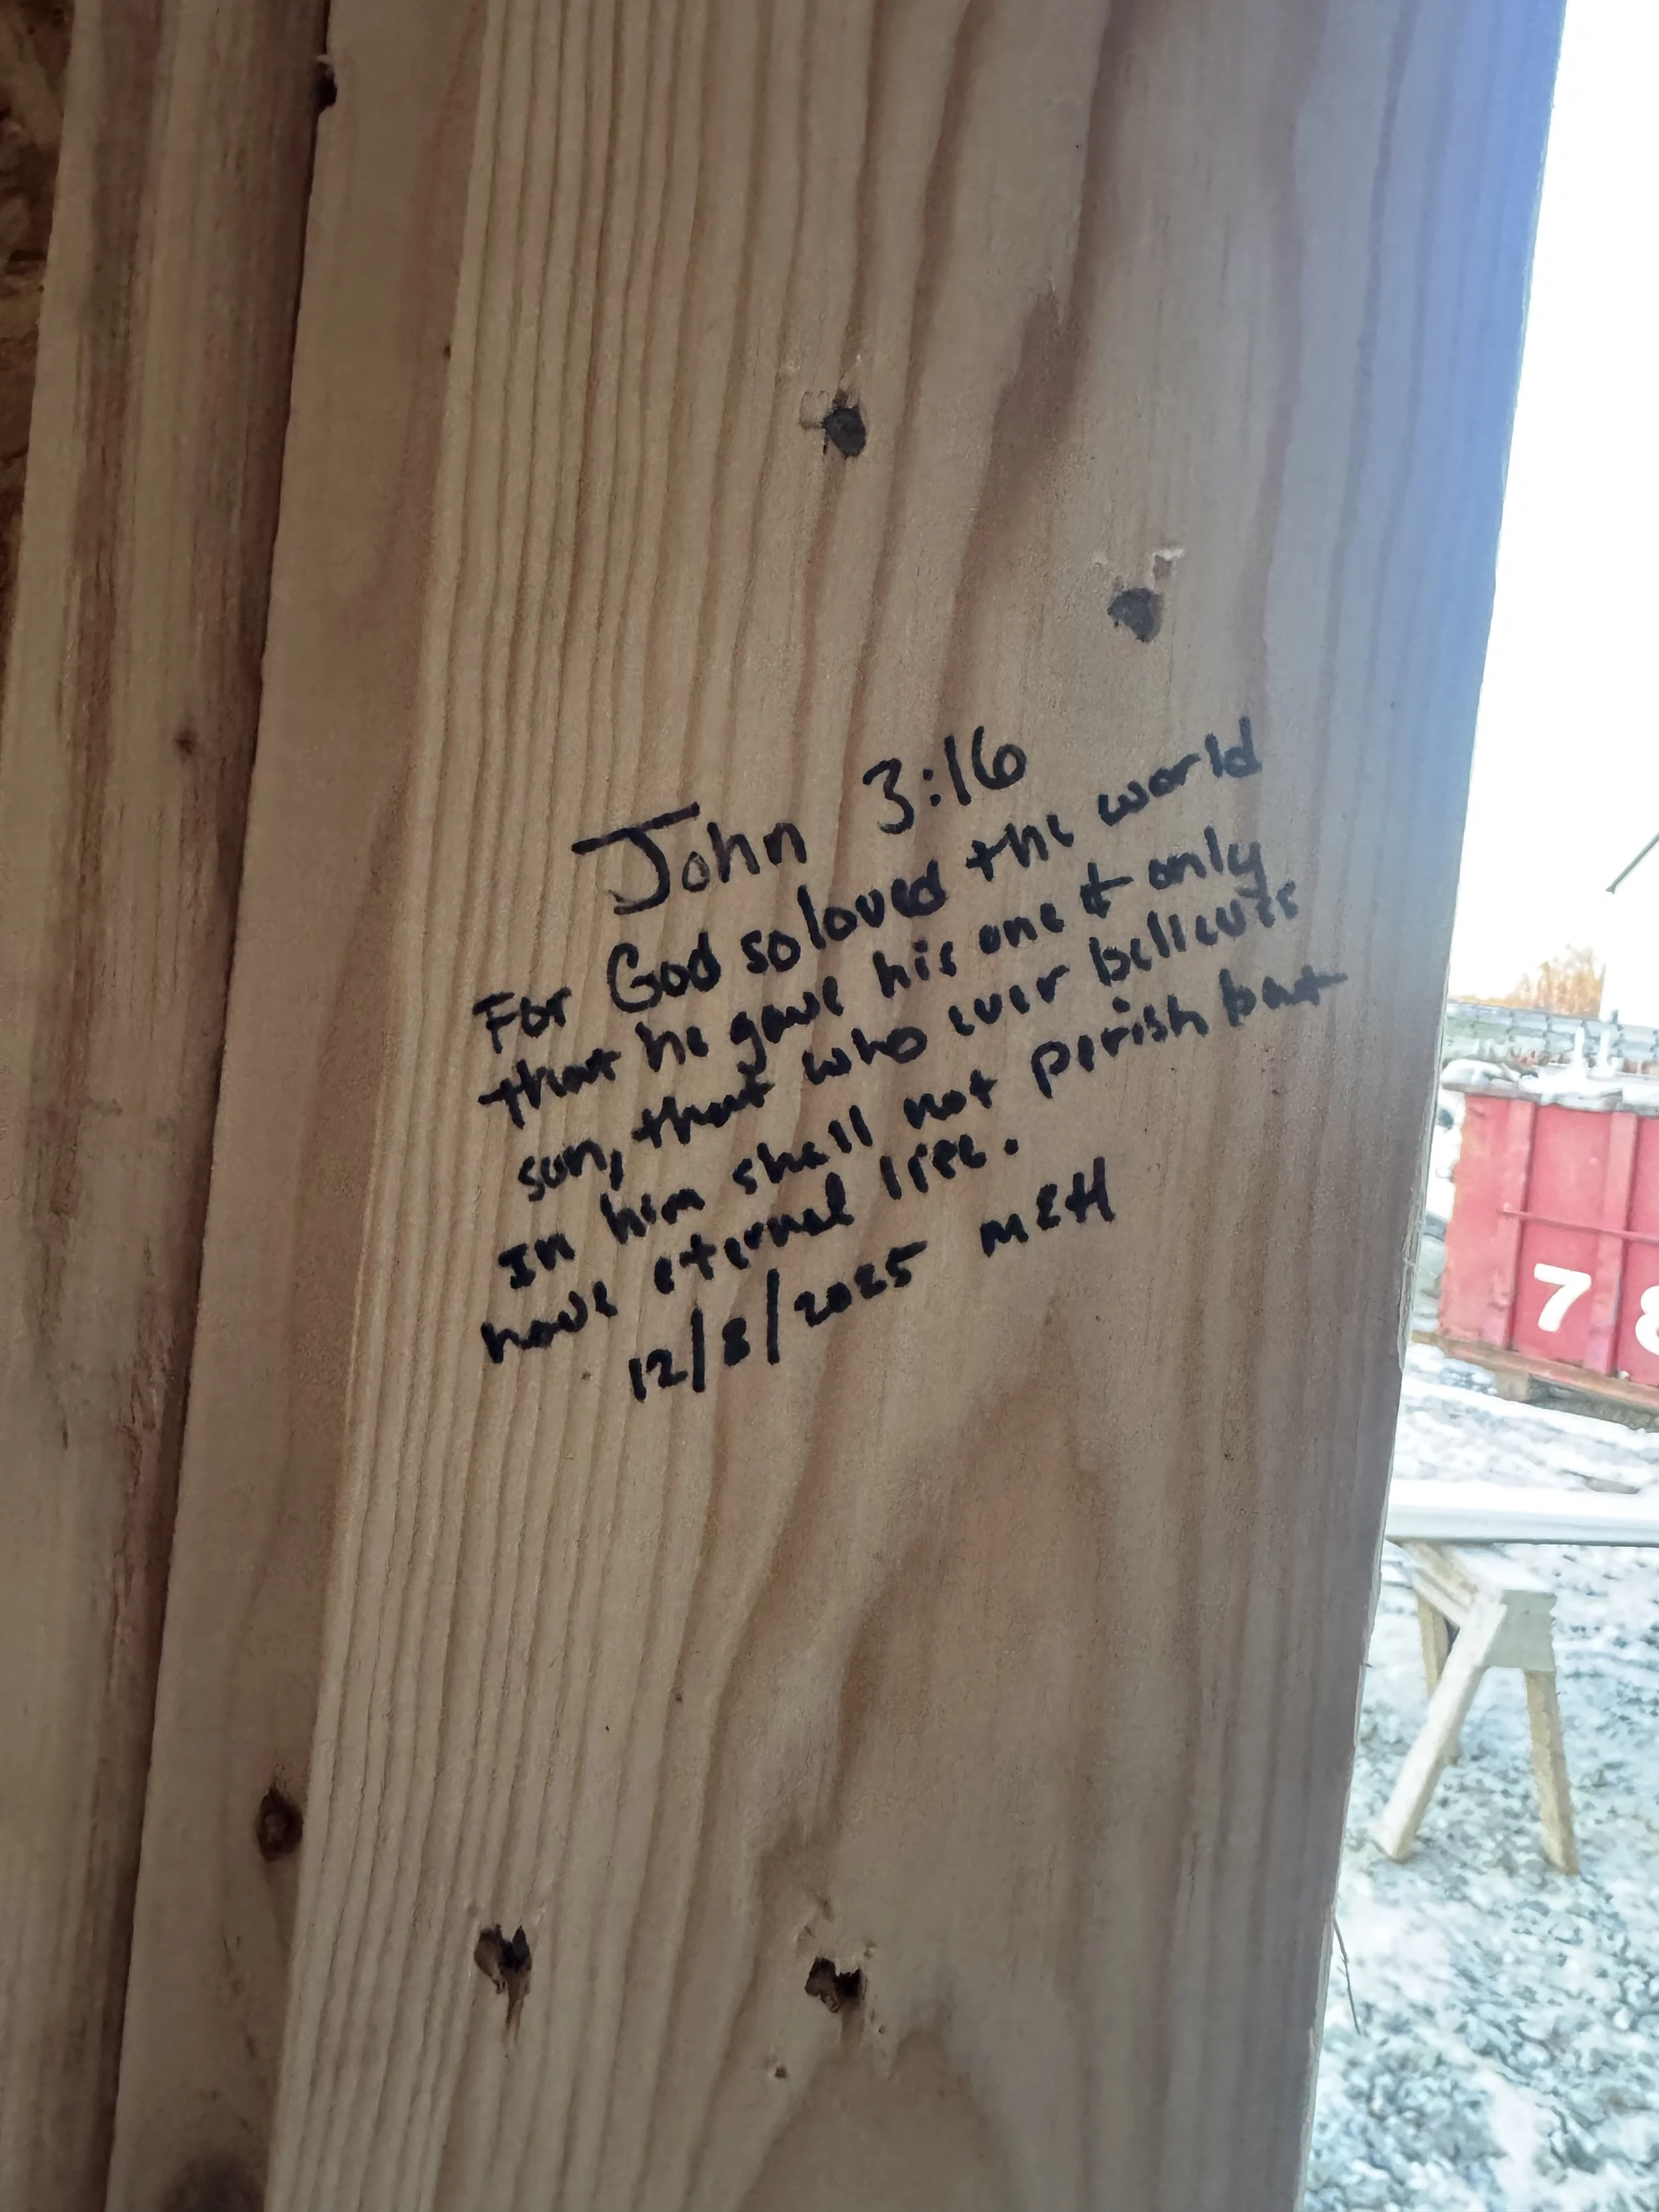 John 3:16
For God so loved the world
that he gave his one & only
son, that who ever believes
in him shall not perish but
have eternal life.
12/8/2025 MEH
7